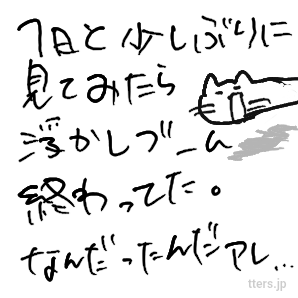 7日と少しぶりに
見てみたら
浮かしづーん
終わってた。
なんだったんだアレ...
tters.jp